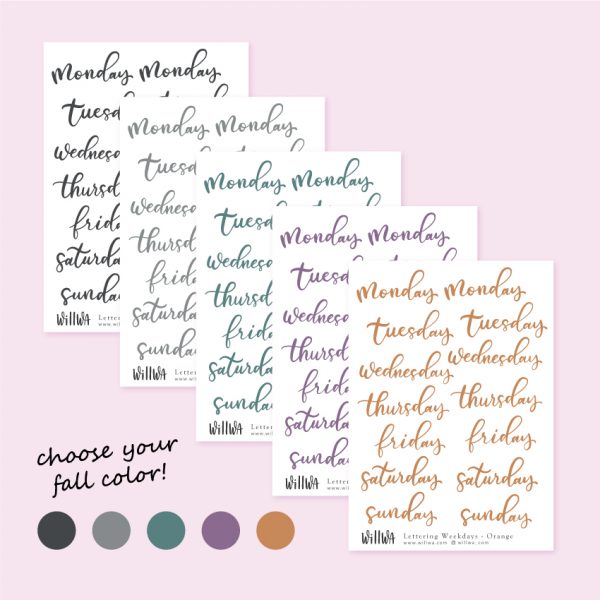 Monday Monday
Tuesda
wednes
thursd
frid
satur
sund
WillWa
Monday Monday
Tuesd
wednes
thursd
frid
saturda
sunda
WillWa Lettering
www.willwa
Monday Monday
Tuesd
wednes
thursd
frida
saturda
sunday
WillWa
Monday Monday
Tuesd
wednes
thursd
frid
saturd
sund
WillWa
Monday Monday
Tuesday Tuesday
wednesday wednesday
thursday thursday
friday friday
saturday saturday
sunday sunday
WillWa Lettering Weekdays - Orange
www.willwa.com @willwa_com
choose your
fall color!